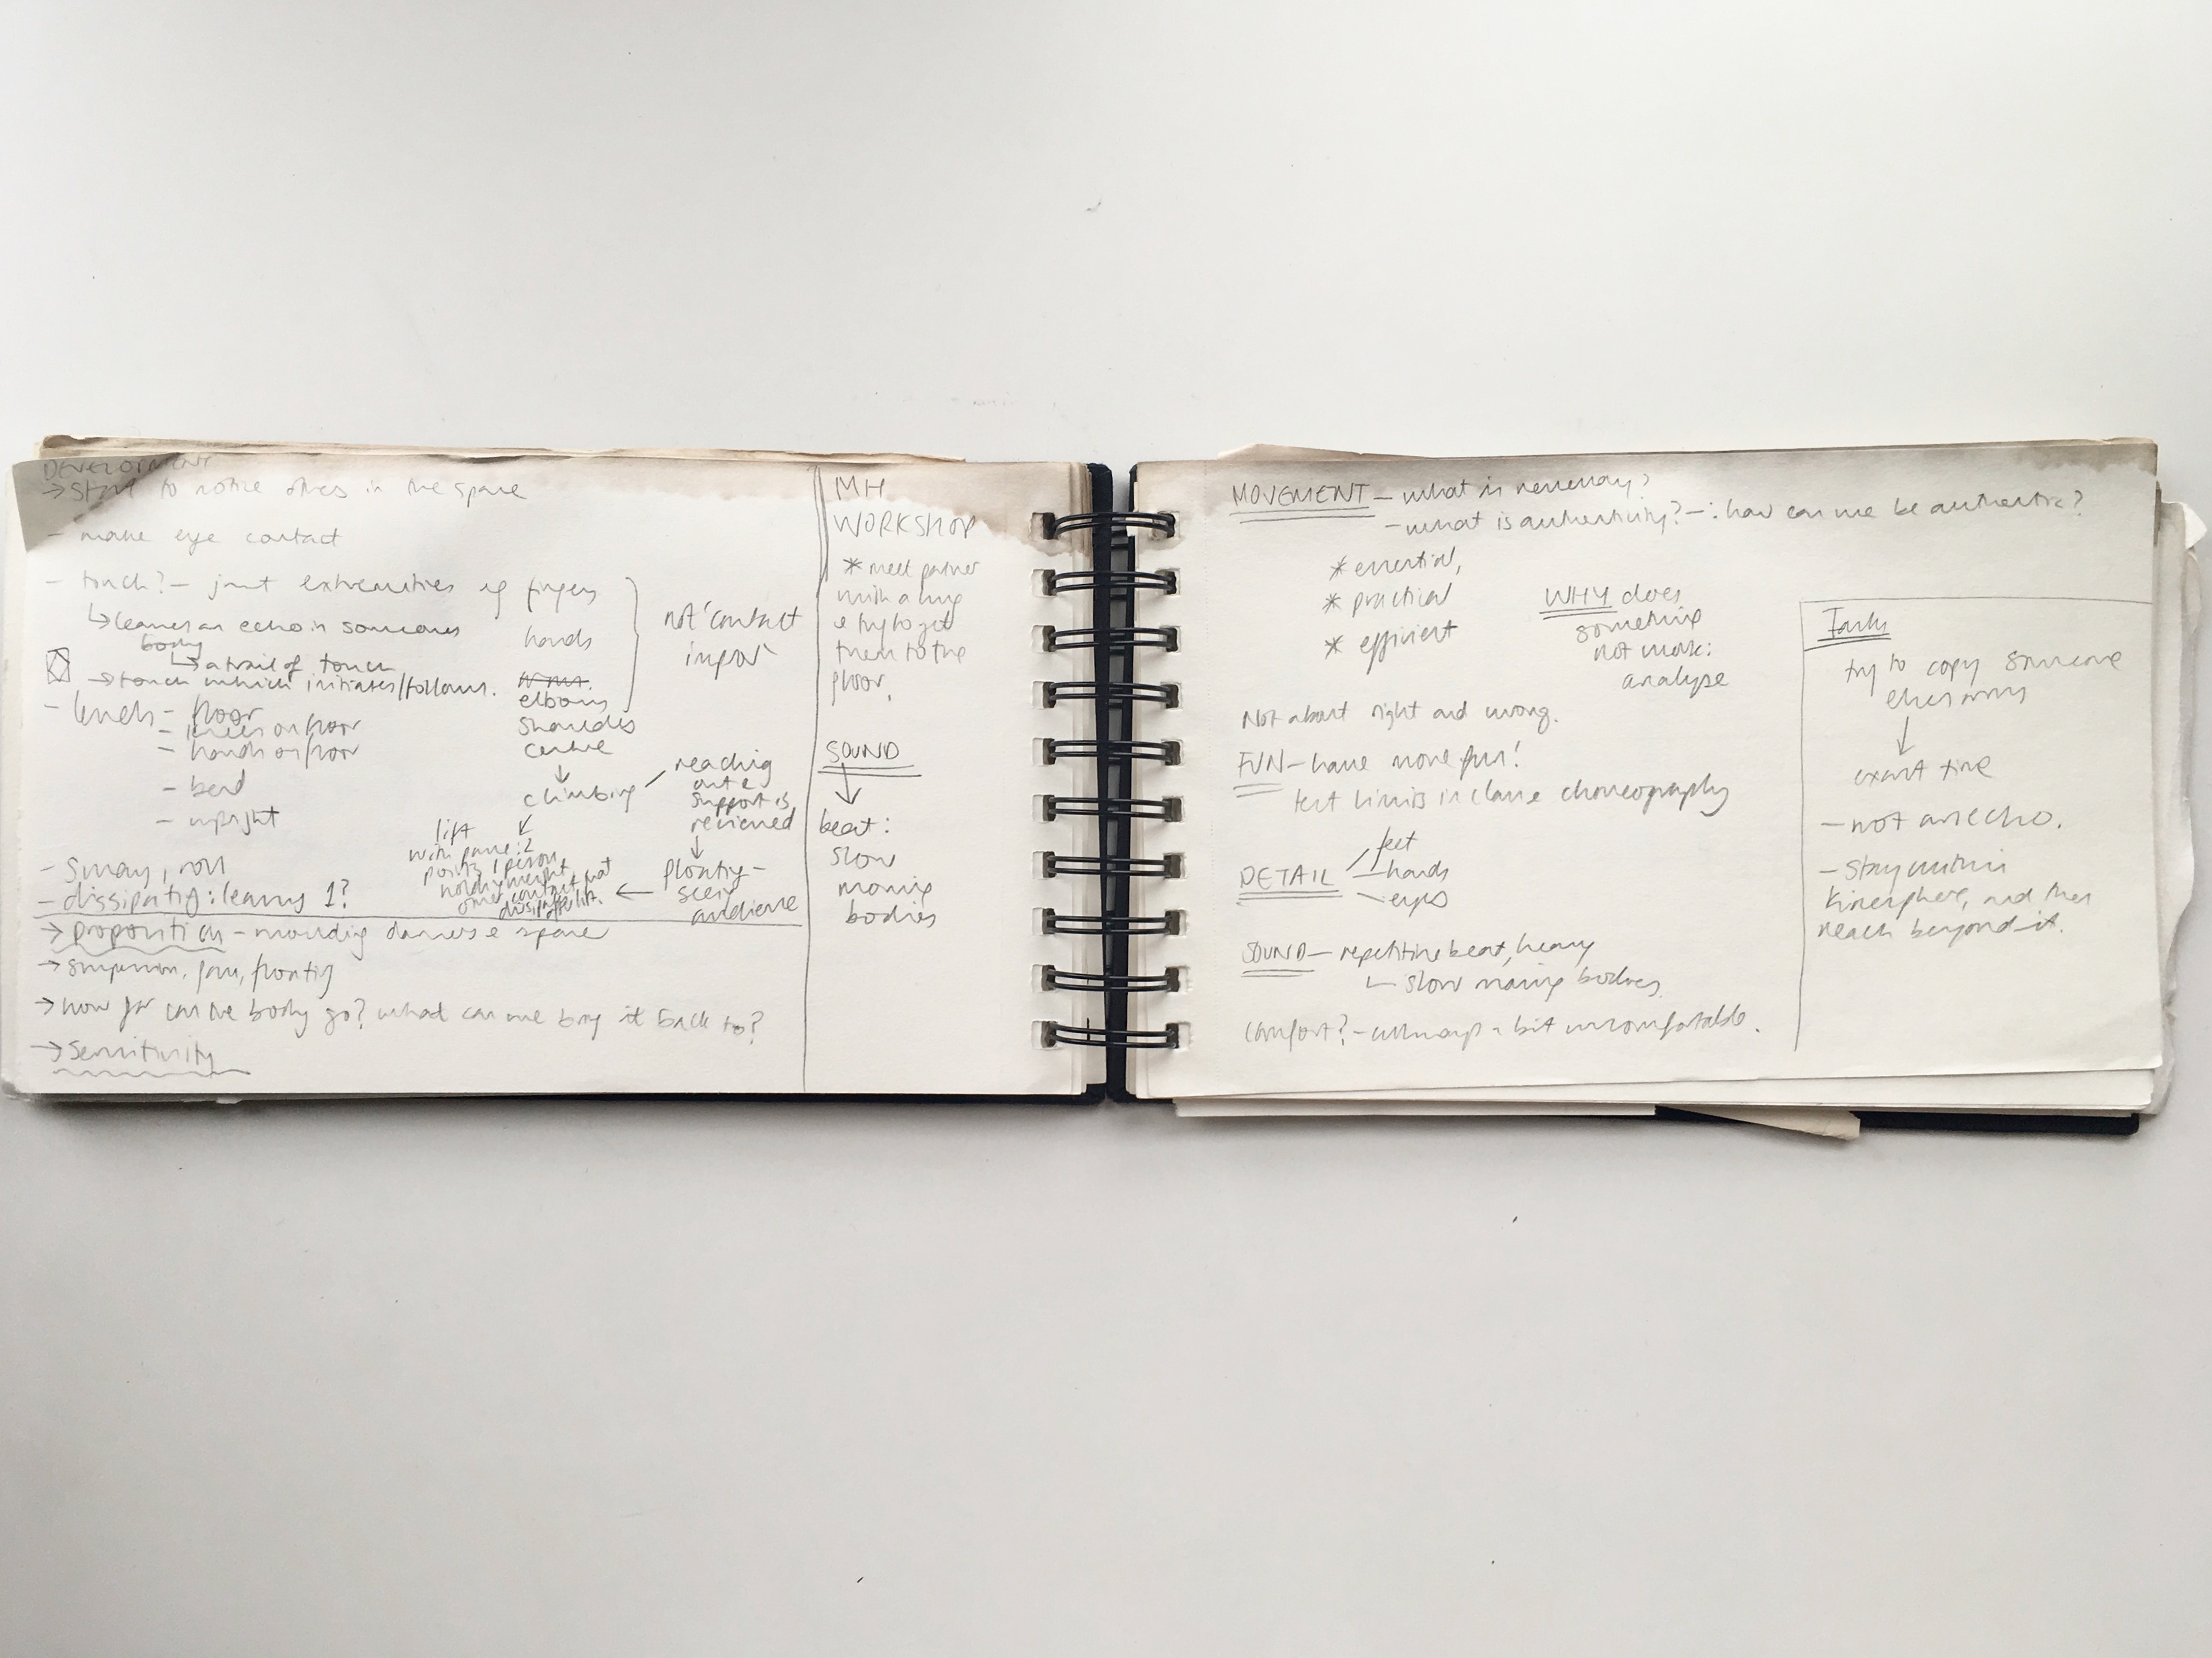 DEVELOPMENT
→ start to notice others in the space
- make eye contact
- touch? - joint extremities eg fingers
↳ leaves an echo in someones
body
↳ a trail of touch
→ touch which initiates/follows.
hands
arms.
elbows
shoulders
centre
↓
climbing
not 'contact
improv'
- levels - floor
- knees on floor
- hands on floor
- bend
- upright
reaching
out &
support is
received
↓
floating -
seeing
audience
lift
with pause: 2
points, 1 person
holding weight,
other contact but
dissipates
after lift.
- Sway, roll
- dissipating: leaving 1?
→ proposition - moulding dancers & space
→ suspension, pause, floating
→ how far can the body go? what can we bring it back to?
→ Sensitivity
MH
WORKSHOP
* meet partner
with a hug
& try to get
them to the
floor.
SOUND
↓
beat:
slow
moving
bodies
MOVEMENT - what is necessary?
- what is authenticity? - ∴ how can we be authentic?
* essential,
* practical
* efficient
WHY does
something
not work:
analyse
Not about right and wrong.
FUN - have more fun!
test limits in class choreography
DETAIL
feet
- hands
- eyes
SOUND - repetitive beat, heavy
↳ slow moving bodies.
Comfort? - always a bit uncomfortable.
Tasks
try to copy someone
elses arms
↓
exact time
- not an echo.
- Stay within
kinesphere, and then
reach beyond it.